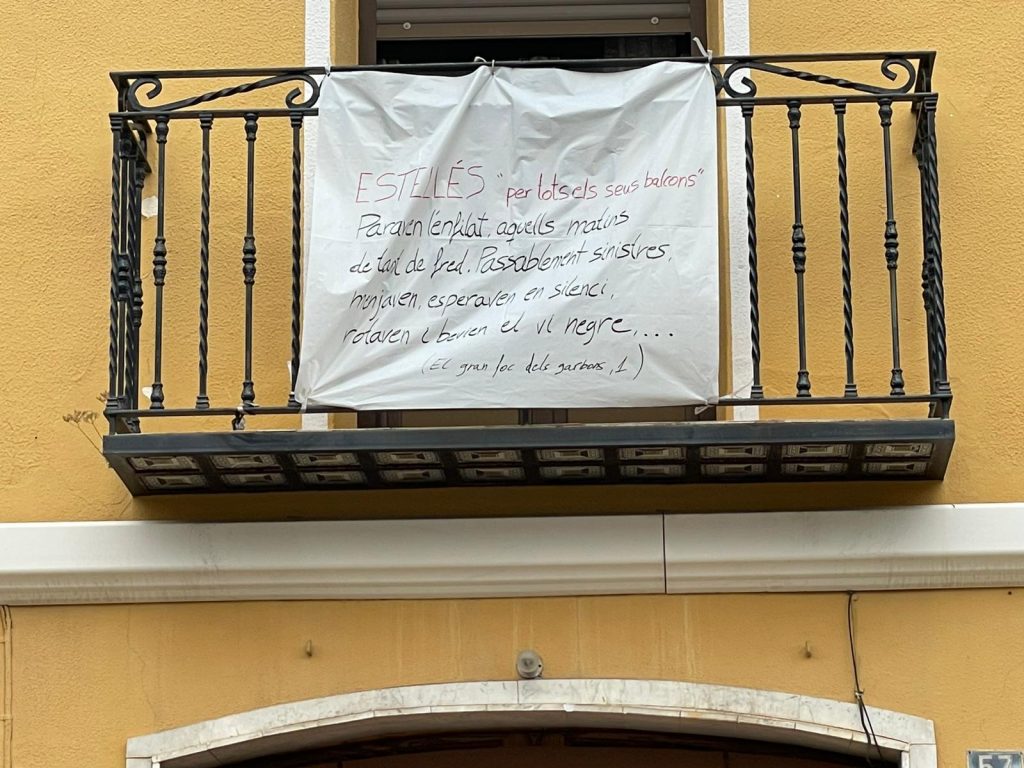 ESTELLÉS "per tots els seus balcons"
Paraven l'enfilat, aquells matins
de tant de fred. Passablement sinistres,
menjaven, esperaven en silenci,
rotaven i bevien el vi negre,...
(El gran foc dels garbons, 1)
57